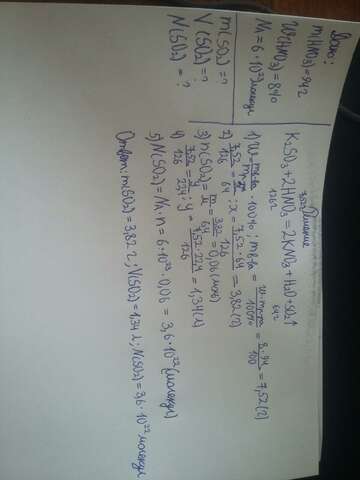 Дано:
m(HNO₃)=94г
W(HNO₃)=8%
Nₐ=6·10²³молекул
m(SO₂)=?
V(SO₂)=?
N(SO₂)=?
Решение
7,52г 64г
K₂SO₃+2HNO₃=2KNO₃+H₂O+SO₂↑
126г
1) W=mв-ва/mр-ра·100%; mв-ва=w·mр-ра/100%=8·94/100=7,52(г)
2) 7,52/126=x/64; x=7,52·64/126=3,82(г)
3) n(SO₂)=m/M=3,82/64=0,06(моль)
4) 7,52/126=y/22,4; y=7,52·22,4/126=1,34(л)
5) N(SO₂)=Nₐ·n=6·10²³·0,06=3,6·10²²(молекул)
Ответ: m(SO₂)=3,82г; V(SO₂)=1,34л; N(SO₂)=3,6·10²² молекул